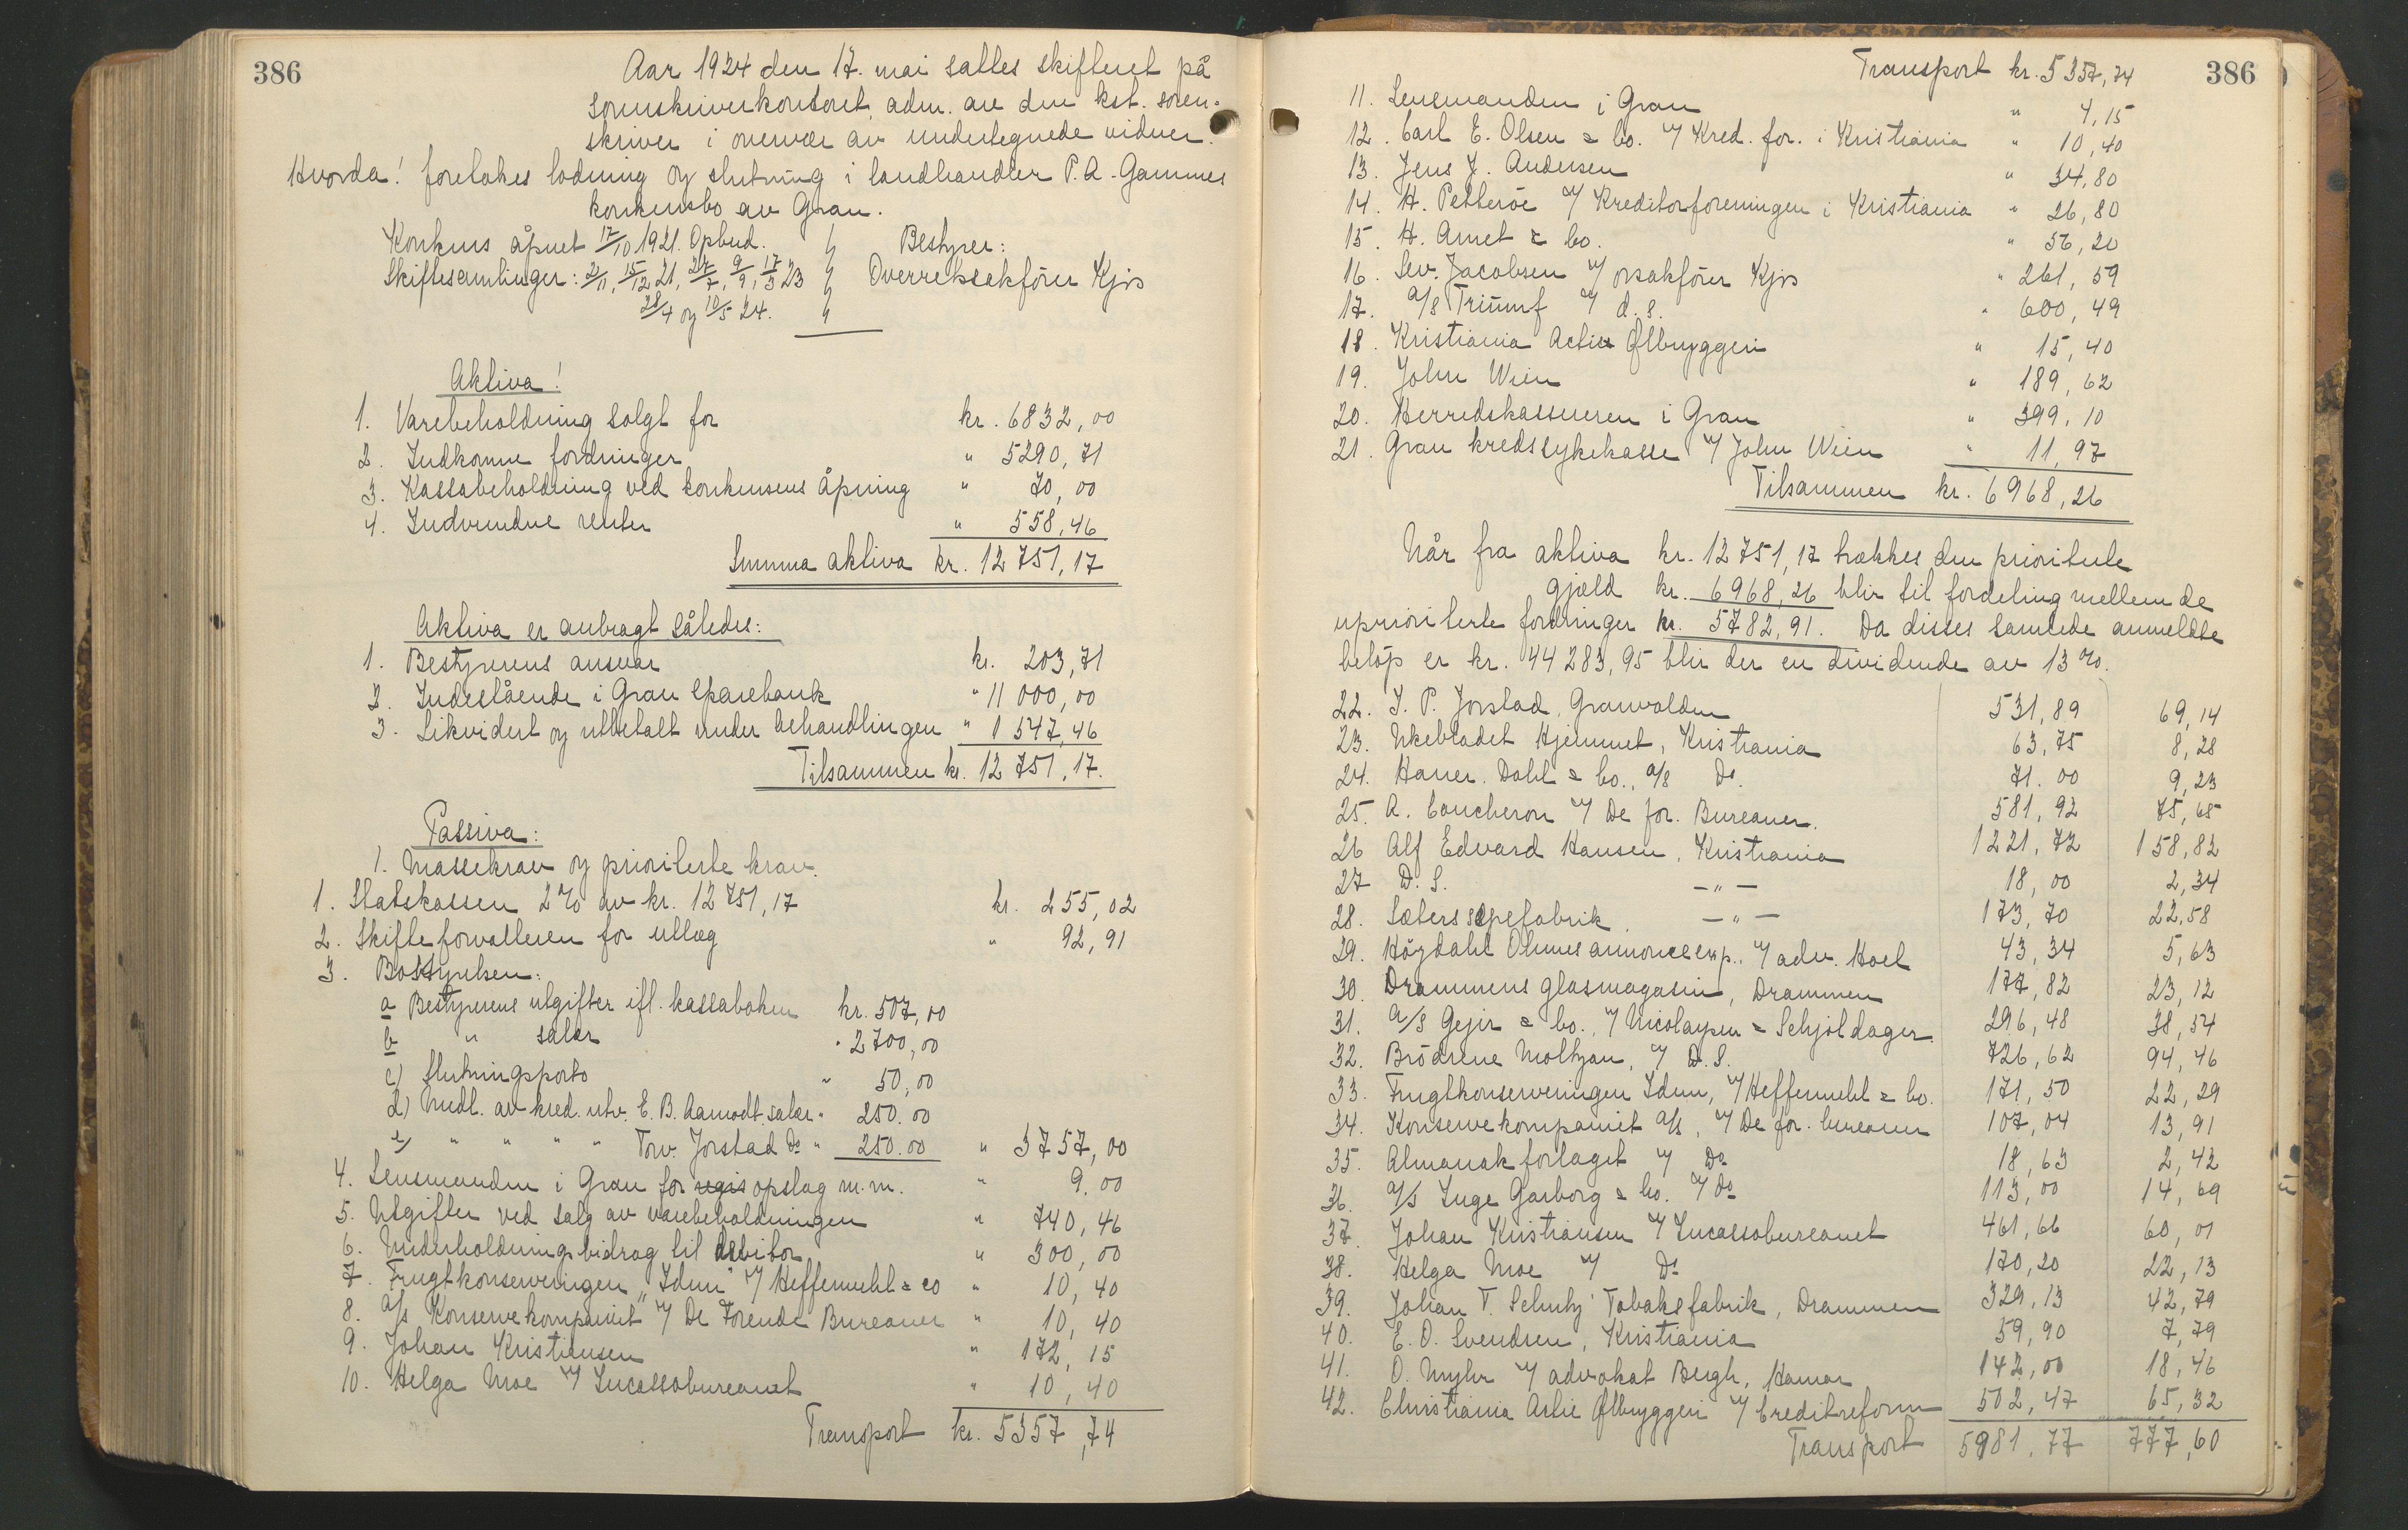 386
Aar 1924 den 17. mai sattes skifteret på
sorenskriverkontoret, adm. av den kst. soren-
skriver i overvær av undertegnede vidner.
Hvorda! foretokes lodning og slutning i landhandler P. A. Gammes
konkursbo av Gran.
Konkurs åpnet 17/10 1921. Opbud.
Skiftesamlinger: 2/11, 15/12 21, 24/7, 9/9, 17/3 23
28/4 og 10/5 24.
Bestyrer:
Overretssakfører Kjos
Aktiva!
1. Varebeholdning solgt for kr. 6832,00
2. Indkomne fordringer " 5290,71
3. Kassabeholdning ved konkursens åpning " 70,00
4. Indvundne renter " 558,46
Summa aktiva kr. 12 751,17
Aktiva er anbragt således:
1. Bestyrerens ansvar kr. 203,71
2. Indestående i Gran Sparebank " 11 000,00
3. Likvidert og utbetalt under behandlingen " 1 547,46
Tilsammen kr. 12 751,17.
Passiva:
1. Massekrav og prioriterte krav.
1. Statskassen 2% av kr. 12 751,17 kr. 255,02
2. Skifteforvalteren for utlæg " 92,91
3. Bostyrelsen:
a Bestyrerens utgifter ifl. kassaboken kr. 507,00
b " salær " 2700,00
c) Slutningsporto " 50,00
d) Medl. av kred. utv. E. B. Aamodt salær " 250.00
e) " " " " Torv. Jorstad Do " 250.00 " 3757,00
4. Lensmanden i Gran for regis opslag m.m. " 9.00
5. Utgifter ved salg av varebeholdningen " 740,46
6. Underholdningsbidrag til debitor " 300,00
7. Frugtkonserveringen "Idun" v/ Heffermehl & co " 10,40
8. A/s Konservekompaniet v/ De Forende Bureauer " 10,40
9. Johan Kristiansen " 172,15
10. Helga Moe v/ Incassobureauet " 10,40
Transport kr. 5357,74
386
Transport kr. 5357,74
11. Lensmanden i Gran " 4,15
12. Carl E. Olsen & Co. v/ Kred. for. i Kristiania " 10,40
13. Jens J. Andersen " 34,80
14. H. Petterøe v/ Kreditorforeningen i Kristiania " 26,80
15. H. Amet & Co. " 56,20
16. Sev. Jacobsen v/ orsakfører Kjos " 261,59
17. A/s Triumf v/ d. s. " 600,49
18. Kristiania Actie Ølbryggeri " 15,40
19. John Wien " 189,62
20. Herredskassereren i Gran " 399,10
21. Gran kredssykekasse v/ John Wien " 11,97
Tilsammen kr. 6968,26
Når fra aktiva kr. 12 751,17 trækkes den prioriterte
gjæld kr. 6968,26 blir til fordeling mellem de
uprioriterte fordringer kr. 5782,91. Da disses samlede anmeldte
beløp er kr. 44 283,95 blir der en dividende av 13%.
22. I. P. Jorstad, Granvolden 531,89 69,14
23. Ukebladet Hjemmet, Kristiania 63,75 8,28
24. Haner. Dahl & Co., A/s Do. 71.00 9,23
25. A. Coucheron v/ De for. Bureauer. 581,92 75,65
26 Alf Edvard Hansen, Kristiania 1221,72 158,82
27 D. S. — " — 18,00 2,34
28. Sæters sæpefabrik. — " — 173,70 22,58
29. Høydahl Ohmes annonceexp. v/ adv. Hoel 43,34 5,63
30. Drammens glasmagasin, Drammen 177,82 23,12
31. A/s Gejer & Co., v/ Nicolaysen & Schjoldager. 296,48 38,54
32. Brødrene Moltzau, v/ D. S. 726,62 94,46
33. Frugtkonserveringen Idun, v/ Heffermehl & Co. 171,50 22,29
34. Konservekompaniet A/s, v/ De for. bureauer 107,04 13,91
35. Almanakforlaget v/ Do 18,63 2,42
36. A/s Inge Garborg & Co. v/ Do 113,00 14,69
37. Johan Kristiansen v/ Incassobureauet 461,66 60,01
38. Helga Moe v/ Do 170,20 22,13
39. Johan T. Schutz' Tobaksfabrik, Drammen 329,13 42,79
40. E. O. Svendsen, Kristiania 59,90 7,79
41. O. Myhr v/ advokat Bergh, Hamar 142,00 18,46
42. Christiania Actie Ølbryggeri v/ Creditreform 502,47 65,32
Transport 5981,77 777,60